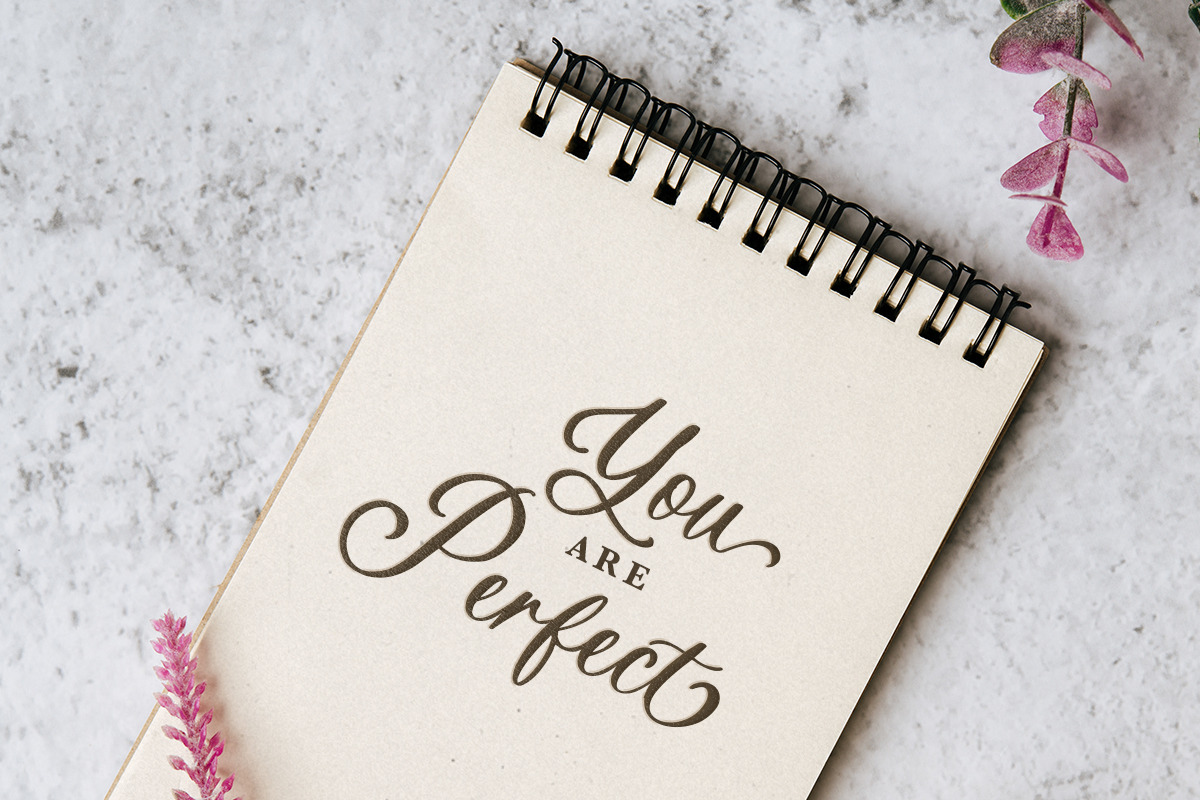 You
ARE
Perfect